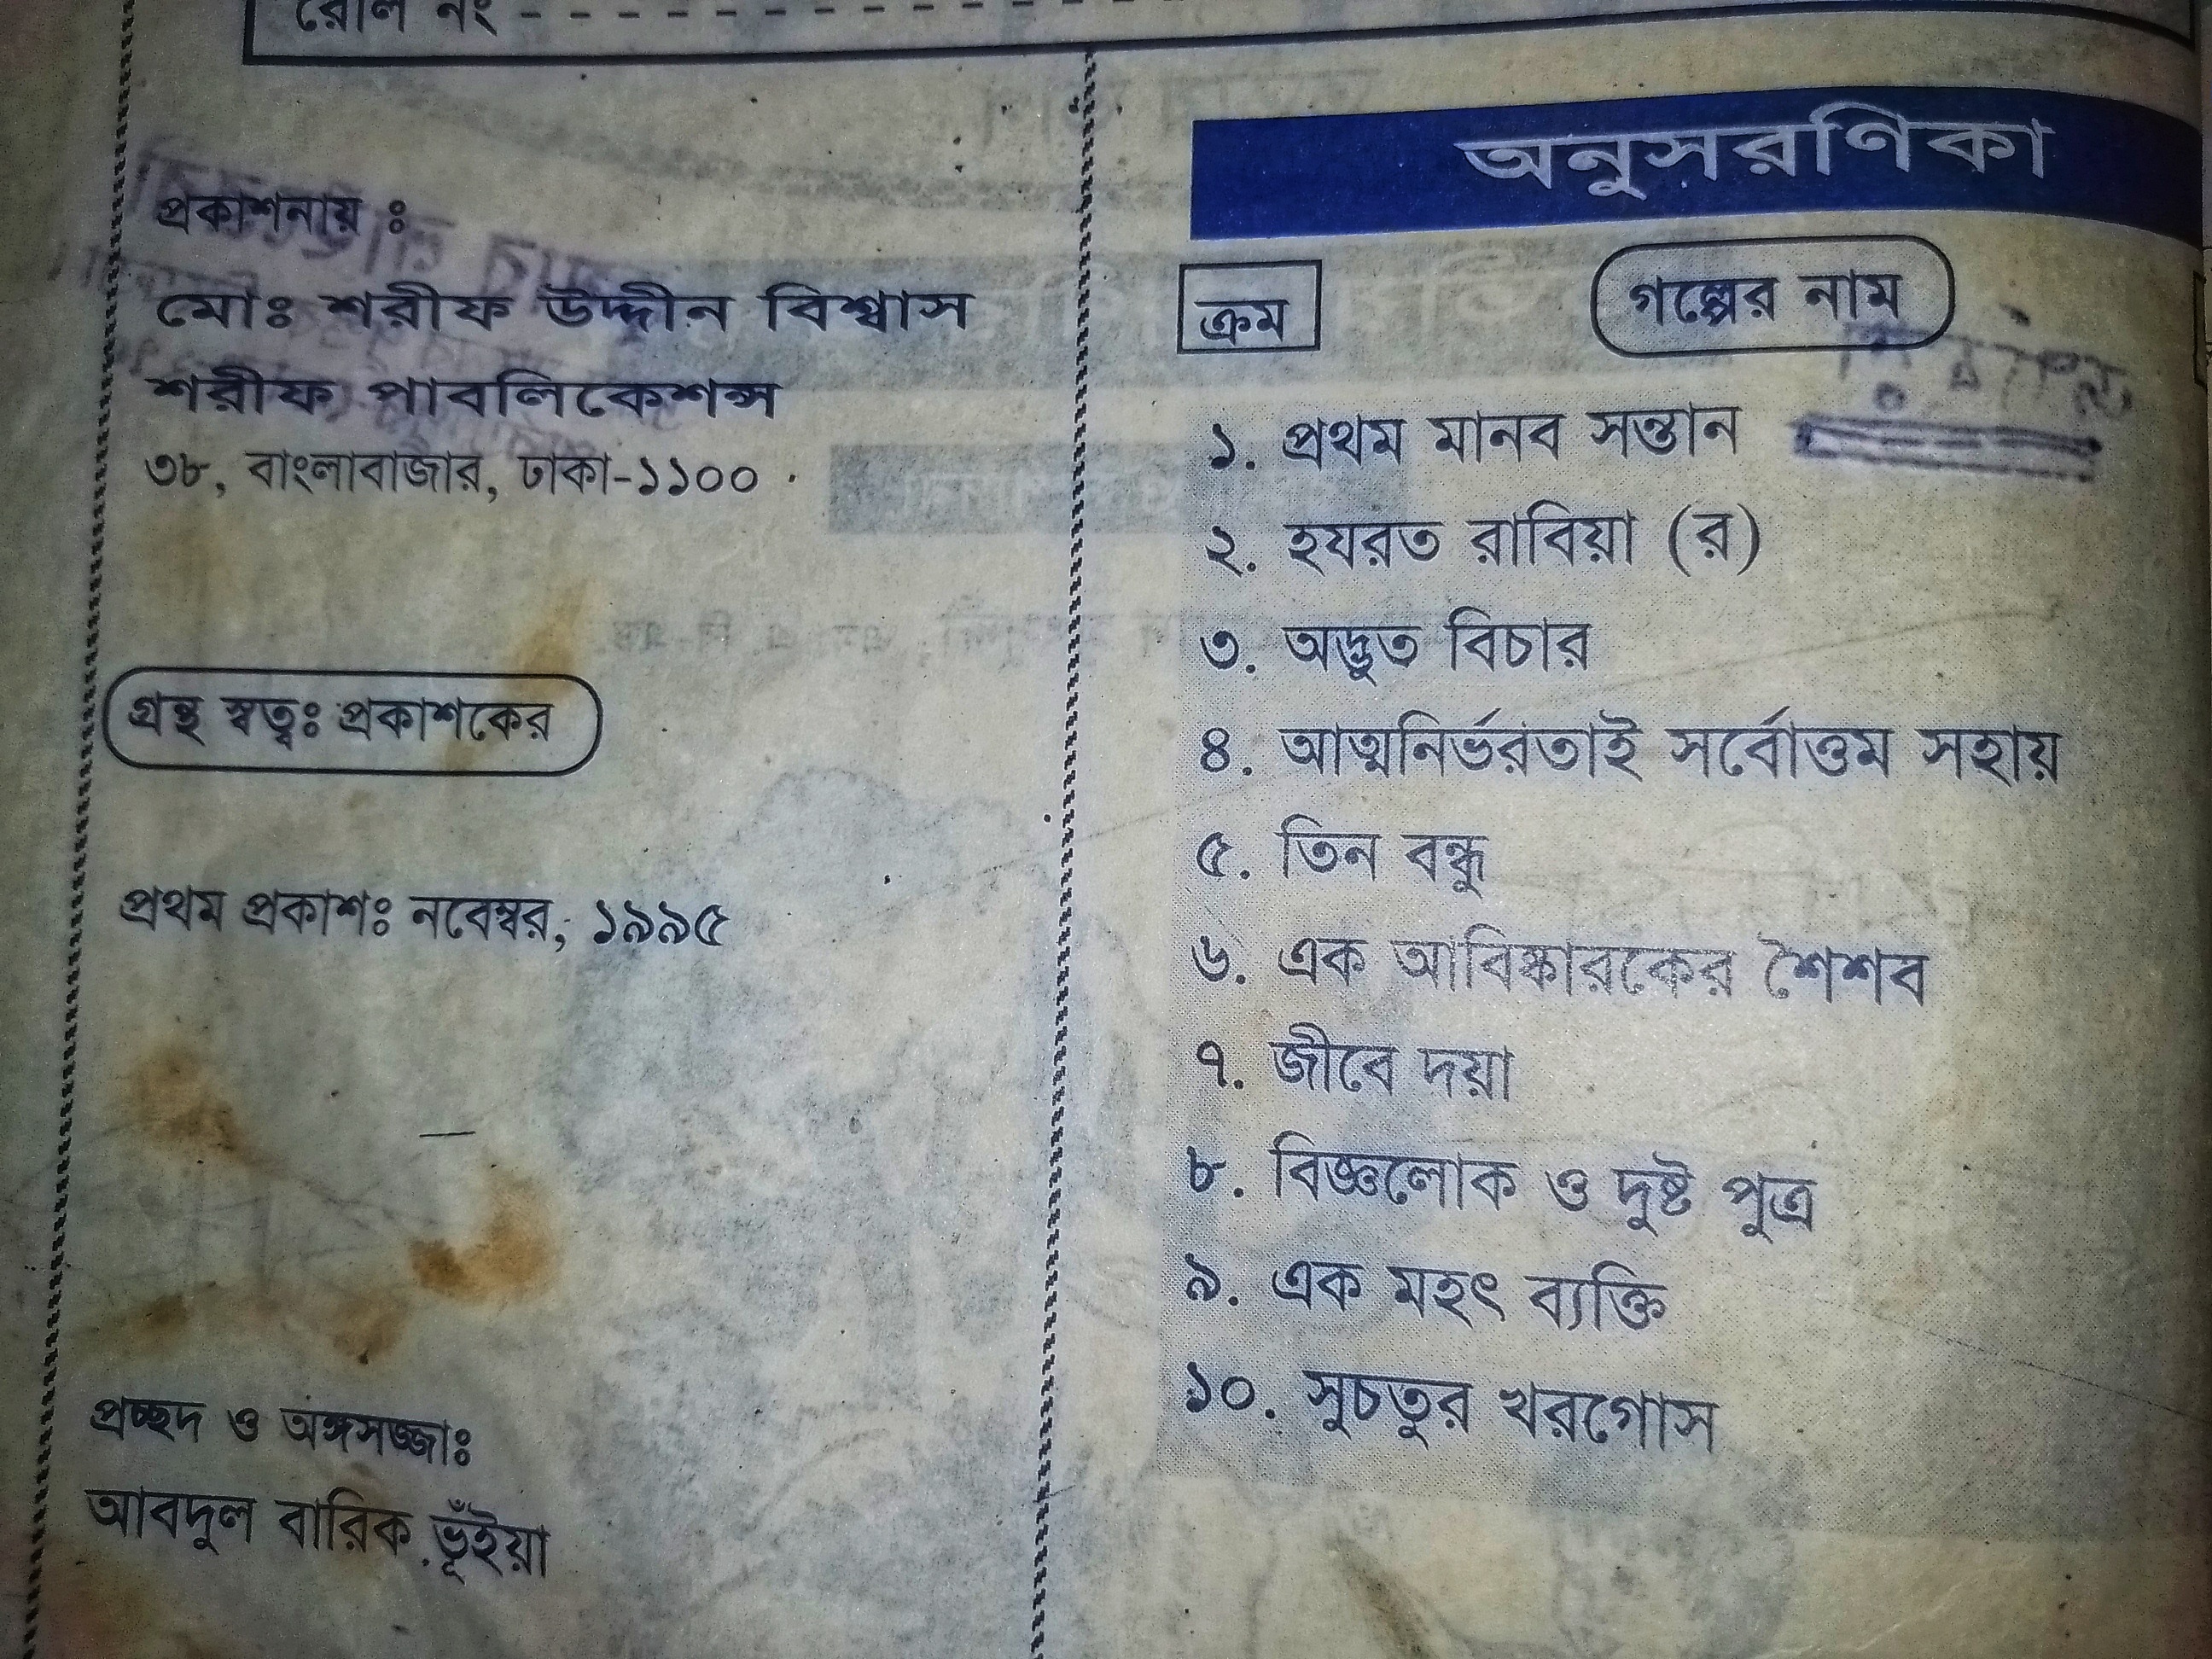 রোল নং - - - - - - - - - - - - - - - - -
প্রকাশনায় ঃ
মোঃ শরীফ উদ্দীন বিশ্বাস
শরীফ পাবলিকেশন্স
৩৮, বাংলাবাজার, ঢাকা-১১০০
গ্রন্থ স্বত্বঃ প্রকাশকের
প্রথম প্রকাশঃ নবেম্বর, ১৯৯৫
প্রচ্ছদ ও অঙ্গসজ্জাঃ
আবদুল বারিক ভূঁইয়া
অনুসরণিকা
ক্রম গল্পের নাম
১. প্রথম মানব সন্তান
২. হযরত রাবিয়া (র)
৩. অদ্ভুত বিচার
৪. আত্মনির্ভরতাই সর্বোত্তম সহায়
৫. তিন বন্ধু
৬. এক আবিষ্কারকের শৈশব
৭. জীবে দয়া
৮. বিজ্ঞলোক ও দুষ্ট পুত্র
৯. এক মহৎ ব্যক্তি
১০. সুচতুর খরগোস